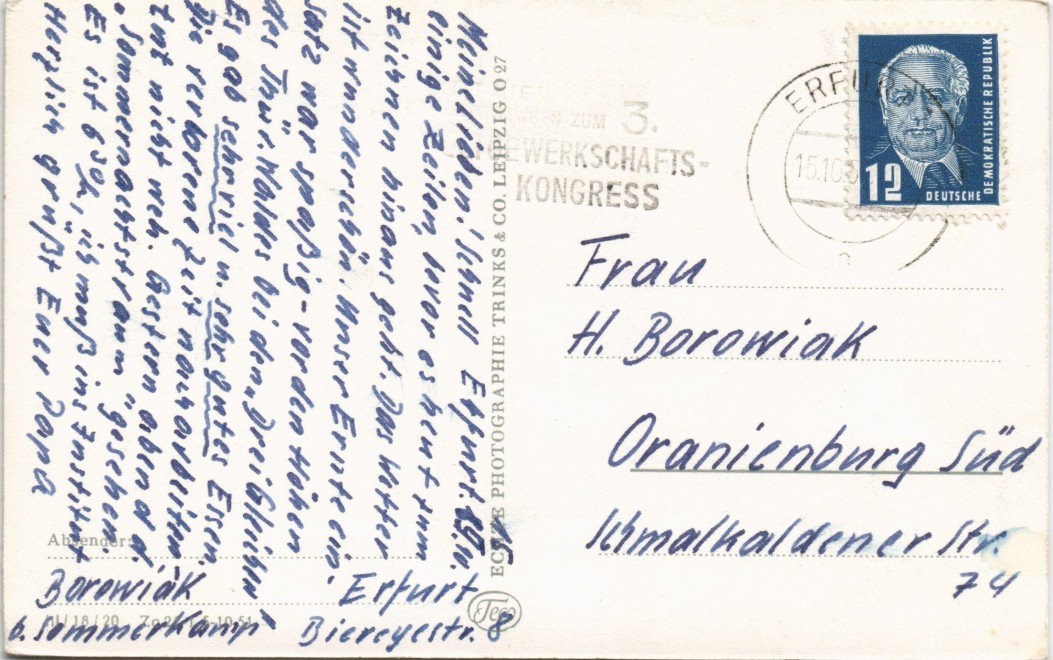 Erfurt. 15.10.
Meine Lieben! Schnell
einige Zeilen, bevor es heut zum
Zeichnen hinaus geht. Das Wetter
ist wunderschön. Unser Ernteein-
satz war spaßig – vor den Höhen
des Thür. Waldes bei den „Drei Gleichen“.
Es gab sehr viel u. sehr gutes Essen.
Die verlorene Zeit nacharbeiten
tut nicht weh. Gestern abend d.
„Sommernachtstraum“ gesehen.
Es ist 6 30h, ich muß ins Institut
Herzlich grüßt Euer Papa
Absender:
Borowiak Erfurt
b. Sommerkamp Biereyestr. 8
III/18/20
ECHTE PHOTOGRAPHIE TRINKS & CO. LEIPZIG O 27
Teco
ZUM 3.
GEWERKSCHAFTS-
KONGRESS
ERFURT
15.10.5
a
12
DEUTSCHE
DEMOKRATISCHE REPUBLIK
Frau
H. Borowiak
Oranienburg Süd
Schmalkaldener Str.
74